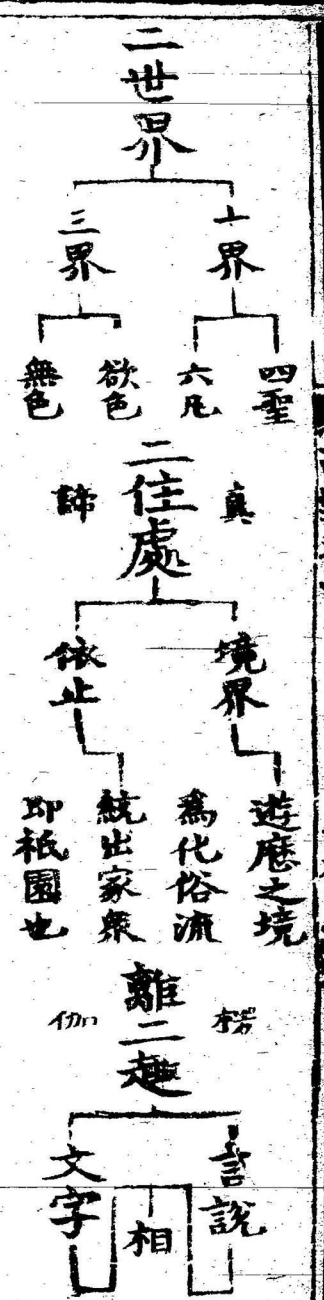 二世界
十界
三界
四聖
六凡
欲色
無色
二住處
真
諦
境界
依止
遊歷之境
為化俗流
統出家衆
即祇園也
離二邊
楞
伽
言說
文字
相